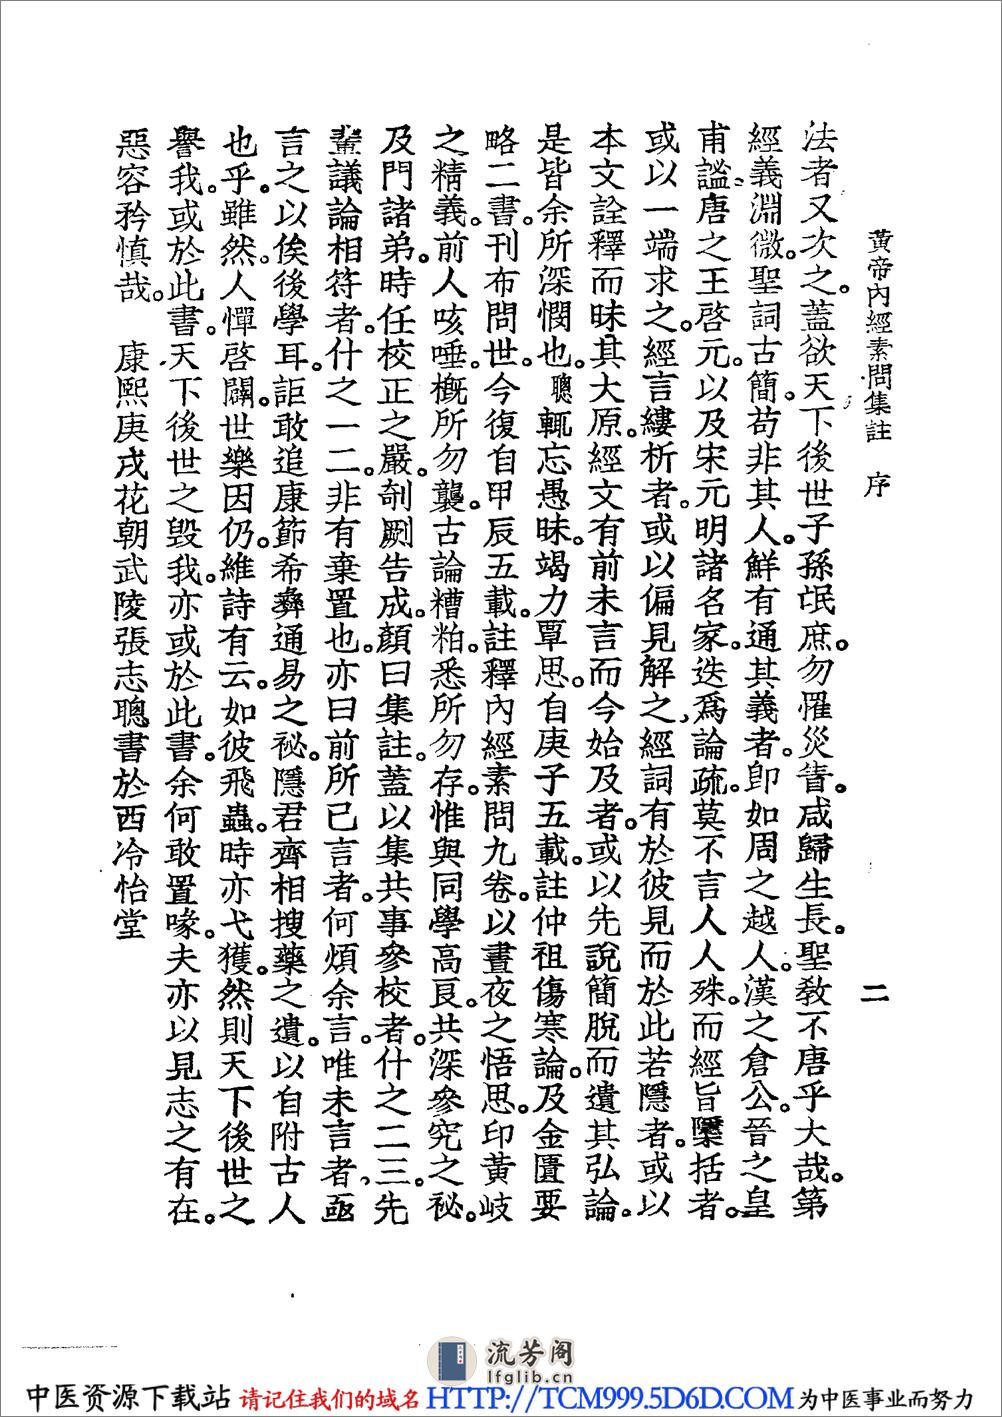 黃帝內經素問集註　序　二
法者又次之。蓋欲天下後世子孫氓庶。勿罹災眚。咸歸生長。聖敎不唐乎大哉。第
經義淵微。聖詞古簡。苟非其人。鮮有通其義者。卽如周之越人。漢之倉公。晉之皇
甫謐。唐之王啓元。以及宋元明諸名家。迭爲論疏。莫不言人人殊。而經旨隱括者。
或以一端求之。經言縷析者。或以偏見解之、經詞有於彼見而於此若隱者。或以
本文詮釋而昧其大原。經文有前未言而今始及者。或以先說簡脫而遺其弘論。
是皆余所深憫也。聰輒忘愚昧。竭力覃思。自庚子五載。註仲祖傷寒論。及金匱要
略二書。刊布問世。今復自甲辰五載。註釋內經素問九卷。以晝夜之悟思。印黃岐
之精義。前人咳唾。槪所勿襲。古論糟粕。悉所勿存。惟與同學高良。共深參究之秘。
及門諸弟。時任校正之嚴。剞劂告成。顏曰集註。蓋以集共事參校者。什之二三。先
輩議論相符者。什之一二。非有棄置也。亦曰前所已言者。何煩余言。唯未言者、亟
言之以俟後學耳。詎敢追康節希彝通易之秘。隱君齊相搜藥之遺。以自附古人
也乎。雖然。人憚啓闢。世樂因仍。維詩有云。如彼飛蟲。時亦弋獲。然則天下後世之
譽我。或於此書。天下後世之毀我。亦或於此書。余何敢置喙。夫亦以見志之有在。
惡容矜愼哉。　康熙庚戌花朝武陵張志聰書於西泠怡堂
流芳阁
lfglib.cn
中医资源下载站 请记住我们的域名 HTTP://TCM999.5D6D.COM 为中医事业而努力